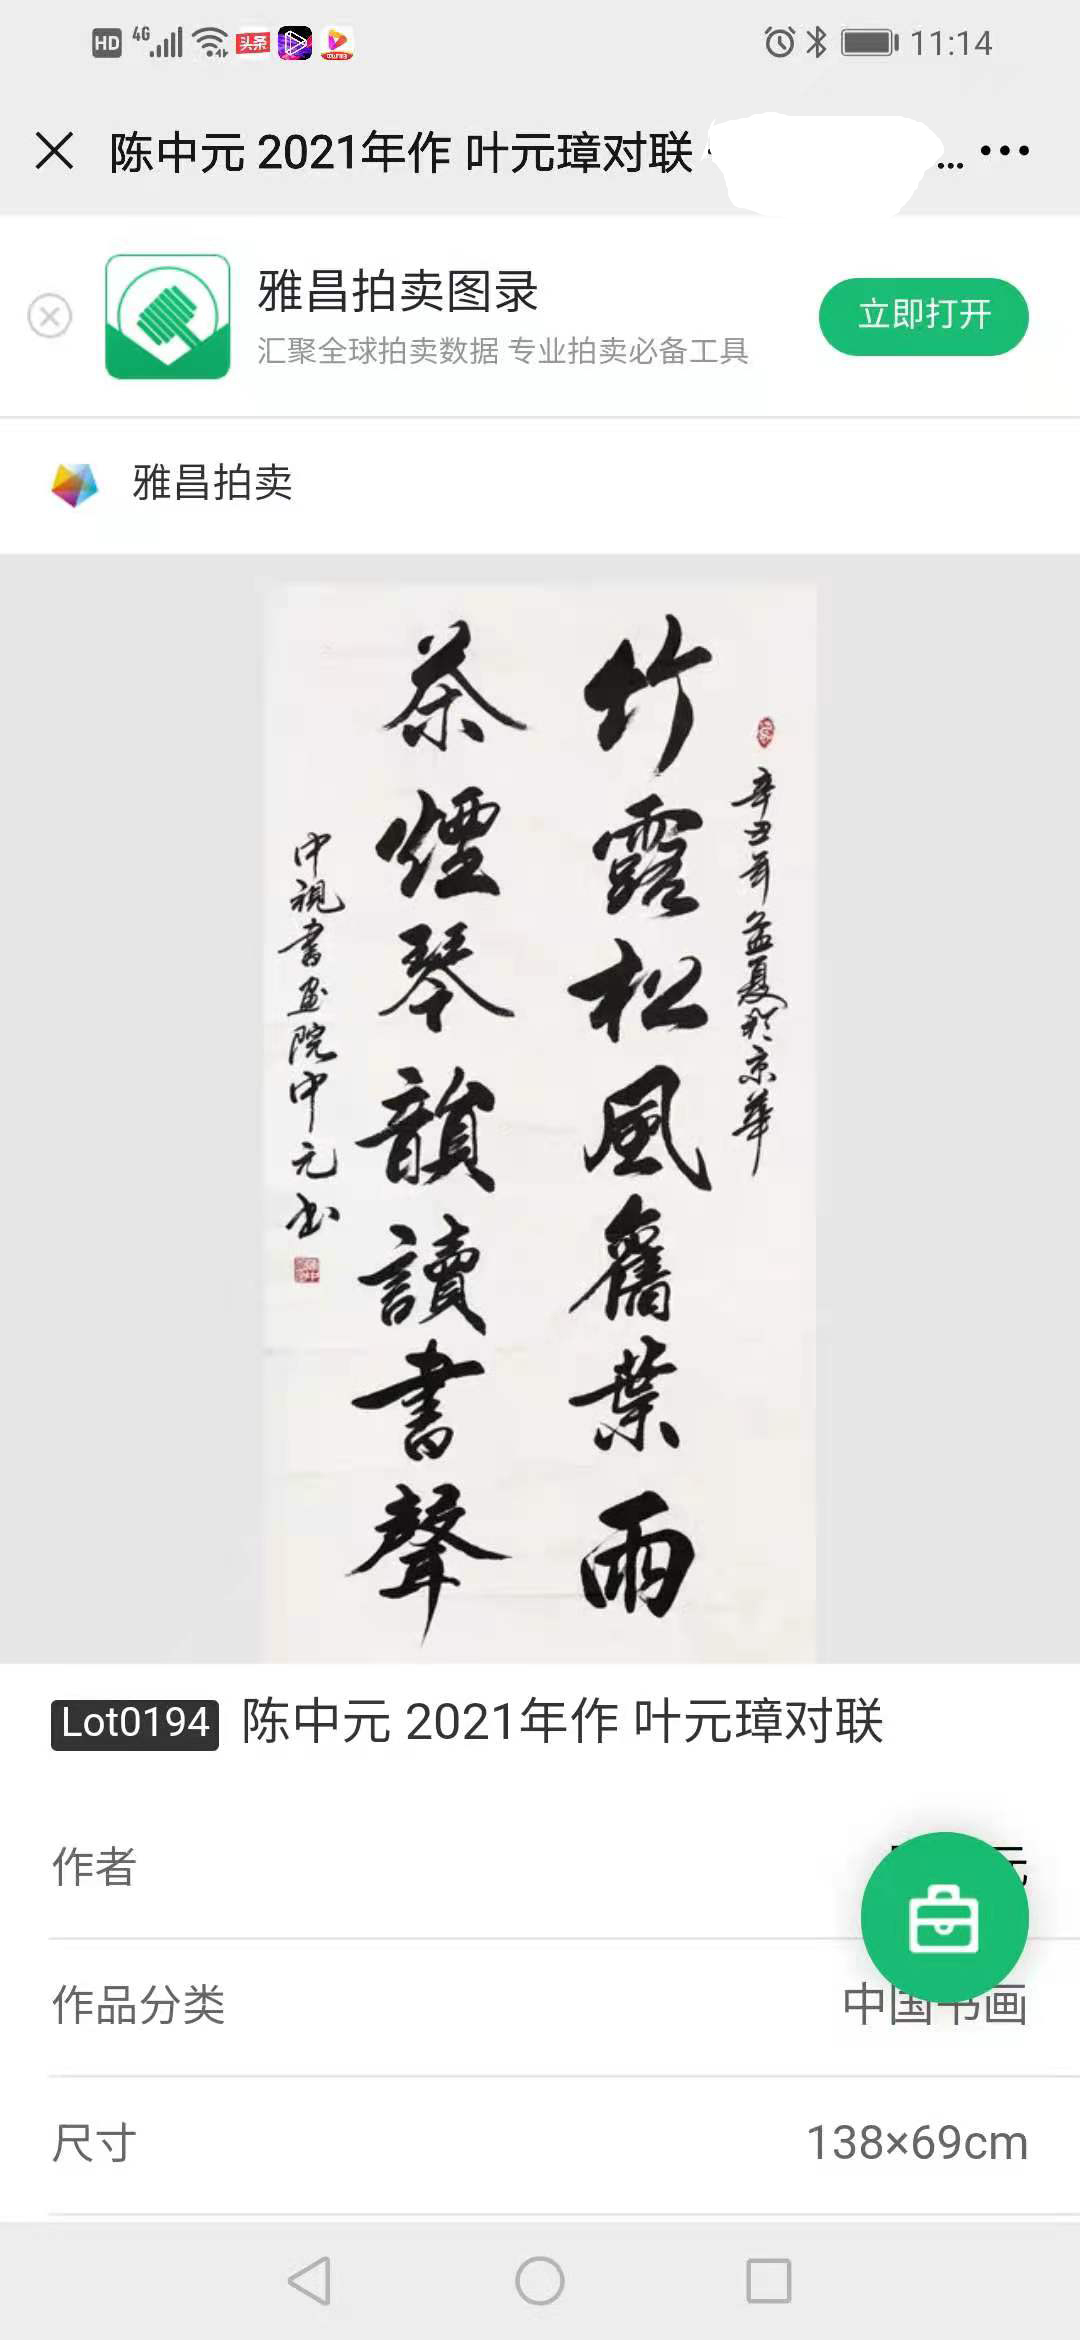 HD 4G 头条 11:14
陈中元 2021年作 叶元璋对联 ...
雅昌拍卖图录
汇聚全球拍卖数据 专业拍卖必备工具
立即打开
雅昌拍卖
辛丑年孟夏於京華
竹露松風舊葉雨
茶煙琴韻讀書聲
中視書画院中元书
Lot0194 陈中元 2021年作 叶元璋对联
作者 元
作品分类 中国书画
尺寸 138×69cm